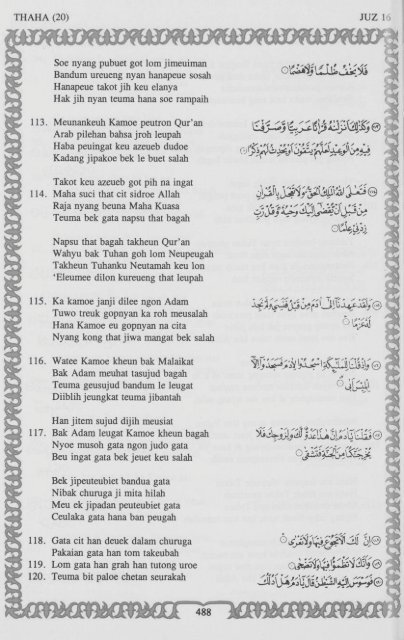 THAHA (20)
JUZ 16
Soe nyang pubuet got lom jimeuiman
Bandum ureueng nyan hanapeue sosah
Hanapeue takot jih keu elanya
Hak jih nyan teuma hana soe rampaih
فَلَا يَخٰفُ ظُلْمًا وَّلَا هَضْمًا
113. Meunankeuh Kamoe peutron Qur'an
Arab pilehan bahsa jroh leupah
Haba peuingat keu azeueb dudoe
Kadang jipakoe bek le buet salah
وَكَذٰلِكَ اَنْزَلْنٰهُ قُرْاٰنًا عَرَبِيًّا وَّصَرَّفْنَا
فِيْهِ مِنَ الْوَعِيْدِ لَعَلَّهُمْ يَتَّقُوْنَ اَوْ يُحْدِثُ لَهُمْ ذِكْرًا
Takot keu azeueb got pih na ingat
114. Maha suci that cit sidroe Allah
Raja nyang beuna Maha Kuasa
Teuma bek gata napsu that bagah
فَتَعٰلَى اللّٰهُ الْمَلِكُ الْحَقُّ وَلَا تَعْجَلْ بِالْقُرْاٰنِ
مِنْ قَبْلِ اَنْ يُّقْضٰٓى اِلَيْكَ وَحْيُهٗ وَقُلْ رَّبِّ
زِدْنِيْ عِلْمًا
Napsu that bagah takheun Qur'an
Wahyu bak Tuhan goh lom Neupeugah
Takheun Tuhanku Neutamah keu lon
'Eleumee dilon kureueng that leupah
115. Ka kamoe janji dilee ngon Adam
Tuwo treuk gopnyan ka roh meusalah
Hana Kamoe eu gopnyan na cita
Nyang kong that jiwa mangat bek salah
وَلَقَدْ عَهِدْنَآ اِلٰٓى اٰدَمَ مِنْ قَبْلُ فَنَسِيَ وَلَمْ نَجِدْ
لَهٗ عَزْمًا
116. Watee Kamoe kheun bak Malaikat
Bak Adam meuhat tasujud bagah
Teuma geusujud bandum le leugat
Diiblih jeungkat teuma jibantah
وَاِذْ قُلْنَا لِلْمَلٰٓئِكَةِ اسْجُدُوْا لِاٰدَمَ فَسَجَدُوْٓا اِلَّآ
اِبْلِيْسَ اَبٰى
Han jitem sujud dijih meusiat
117. Bak Adam leugat Kamoe kheun bagah
Nyoe musoh gata ngon judo gata
Beu ingat gata bek jeuet keu salah
فَقُلْنَا يٰٓاٰدَمُ اِنَّ هٰذَا عَدُوٌّ لَّكَ وَلِزَوْجِكَ فَلَا
يُخْرِجَنَّكُمَا مِنَ الْجَنَّةِ فَتَشْقٰى
Bek jipeuteubiet bandua gata
Nibak churuga ji mita hilah
Meu ek jipadan peuteubiet gata
Ceulaka gata hana ban peugah
118. Gata cit han deuek dalam churuga
Pakaian gata han tom takeubah
اِنَّ لَكَ اَلَّا تَجُوْعَ فِيْهَا وَلَا تَعْرٰى
119. Lom gata han grah han tutong uroe
وَاَنَّكَ لَا تَظْمَؤُا فِيْهَا وَلَا تَضْحٰى
120. Teuma bit paloe chetan seurakah
فَوَسْوَسَ اِلَيْهِ الشَّيْطٰنُ قَالَ يٰٓاٰدَمُ هَلْ اَدُلُّكَ
488